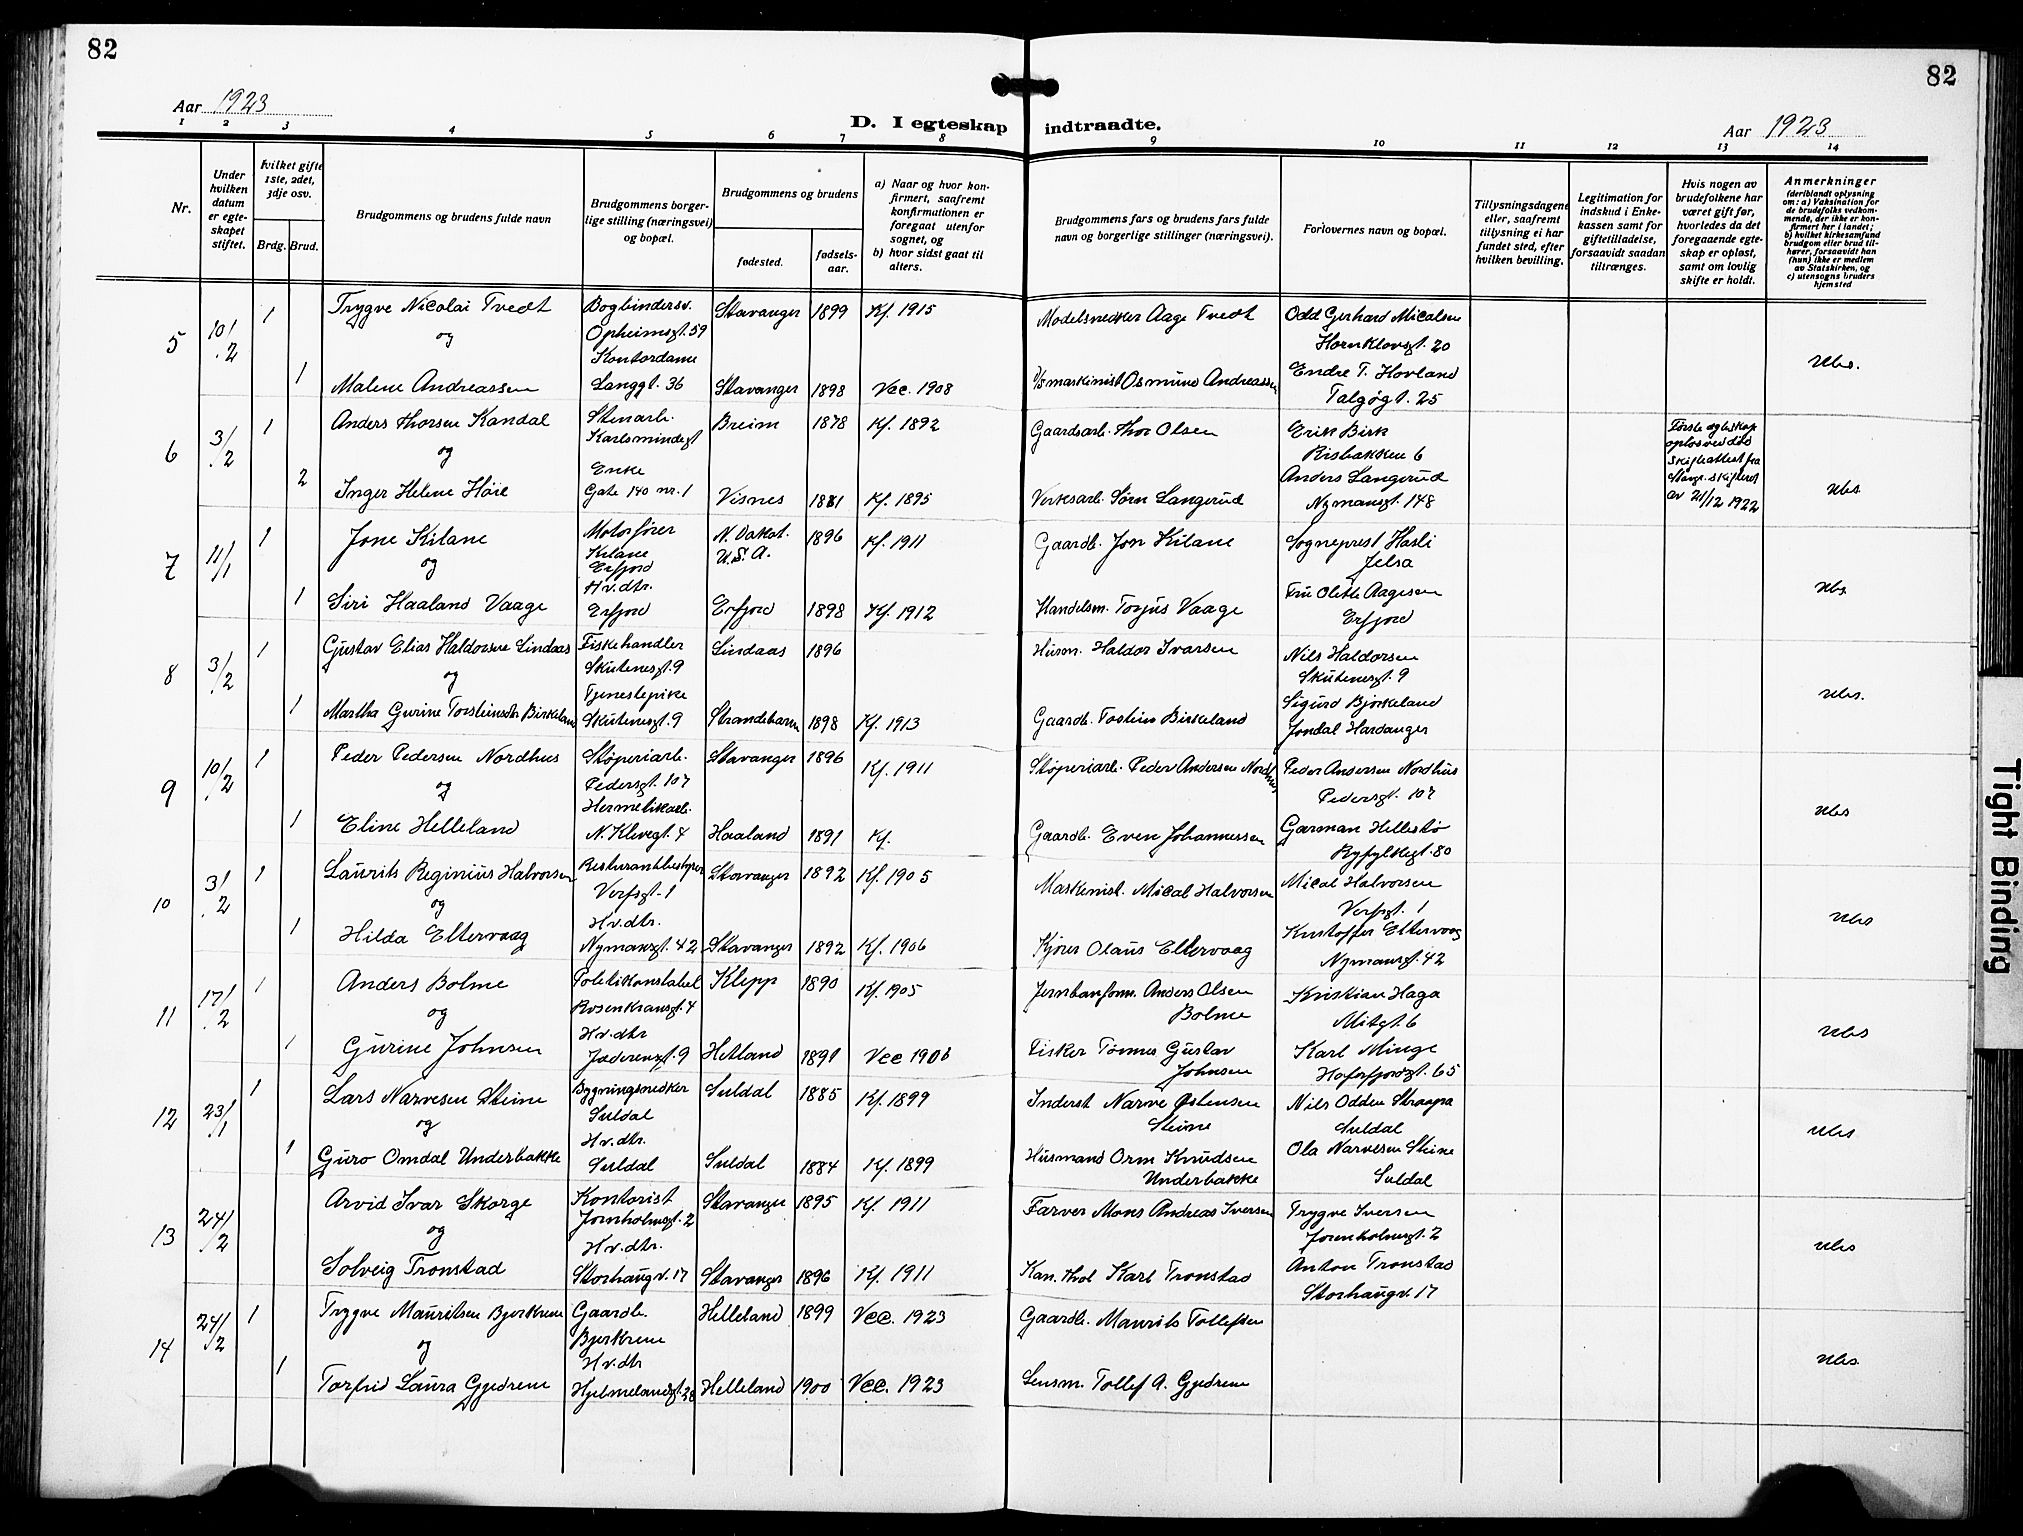 82
82
Aar 1923
D. I egteskap indtraadte.
Aar 1923
1 2 3 4 5 6 7 8 9 10 11 12 13 14
Nr.
Under hvilken datum er egteskapet stiftet.
Hvilket gifte 1ste, 2det, 3dje osv.
Brdg. Brud.
Brudgommens og brudens fulde navn
Brudgommens borgerlige stilling (næringsvei) og bopæl.
Brudgommens og brudens
fødested. fødselsaar.
a) Naar og hvor konfirmert, saafremt konfirmationen er foregaat utenfor sognet, og
b) hvor sidst gaat til alters.
Brudgommens fars og brudens fars fulde navn og borgerlige stillinger (næringsvei).
Forlovernes navn og bopæl.
Tillysningsdagene eller, saafremt tillysning ei har fundet sted, efter hvilken bevilling.
Legitimation for indskud i Enkekassen samt for giftetilladelse, forsaavidt saadan tiltrænges.
Hvis nogen av brudefolkene har været gift før, hvorledes da det foregaaende egteskap er opløst, samt om lovlig skifte er holdt.
Anmerkninger
(deriblandt oplysning om: a) Vaksination for de brudefolks vedkommende, der ikke er konfirmert her i landet; b) hvilket kirkesamfund brudgom eller brud tilhører, forsaavidt han (hun) ikke er medlem av Statskirken, og c) utensogns bruders hjemsted
5 10/2 1 Trygve Nicolai Tvedt Bogbindersv. Stavanger 1899 Kf. 1915 Modelsnedker Aage Tvedt Odd Gerhard Micalsen
og Opheimsgt. 59 Hornklovsgt. 20
Kontordame Endre T. Hovland Ubs.
1 Malene Andreassen Langgt. 36 Stavanger 1898 Vcc. 1908 D/s maskinist Osmund Andreassen Talgøgt. 25
6 3/2 1 Anders Thorsen Kandal Stenarb. Breim 1878 Kf. 1892 Gaardsarb. Thor Olsen Erik Birk Første egteskap
og Karlsmindegt Risbakken 6 opløs ved død
Enke Anders Langerud Skifteattest fra
2 Inger Helene Høie Gate 140 nr. 1 Visnes 1881 Kf. 1895 Verksarb. Søren Langerud Nymansgt. 148 Stavgr. skifteret av 21/12 1922 Ubs
7 11/1 1 Jone Kilane Motorfører N. Dakot. U.S.A. 1896 Kf. 1911 Gaardb. Jon Kilane Sogneprest Hasli
og Kilane Erfjord Jelsa
Hv.dtr. Fru Olette Aagesen Ubs
1 Siri Haaland Vaage Erfjord Erfjord 1898 Kf. 1912 Handelsm. Torjus Vaage Erfjord
8 3/2 1 Gustav Elias Haldorsen Lindaas Fiskehandler Lindaas 1896 Husm. Haldor Ivarsen Nils Haldorsen
og Skutenesgt. 9 Skutenesgt. 9
Tjenestepike Sigurd Bjørkeland Ubs.
1 Martha Gurine Torsteinsdtr Birkeland Skutenesgt. 9 Strandebarm 1898 Kf. 1913 Gaardb. Tostein Birkeland Jondal Hardanger
9 10/2 1 Peder Pedersen Nordhus Støperiarb. Stavanger 1896 Kf. 1911 Støperiarb. Peder Andersen Nordhus Peder Andersen Nordhus
og Pedersgt. 107 Pedersgt. 107
Hermetikarb. Ubs
1 Eline Helleland N. Klevegt. 4 Haaland 1891 Kf. Gaardb. Even Johannessen Garman Hellestø
Ryfylkegt. 80
10 3/2 1 Laurits Reginius Halvorsen Resturantbestyrer Stavanger 1892 Kf. 1905 Maskinist. Mical Halvorsen Mical Halvorsen
og Verfsgt. 1 Verfsgt. 1
Hv.dtr. Kristoffer Eltervaag Ubs
1 Hilda Eltervaag Nymansgt. 42 Stavanger 1892 Kf. 1906 Kjører Olaus Eltervaag Nymansgt. 42
11 17/2 1 Anders Bolme Politikonstabel Klepp 1890 Kf. 1905 Jernbanform. Anders Olsen Bolme Kristian Haga
og Rosenkransgt. 4 Mitgt. 6
Hv.dtr Ubs
1 Gurine Johnsen Jæderensgt. 9 Hetland 1891 Vcc 1906 Fisker Tønnes Gustav Johnsen Karl Minge
Hafrsfjordgt. 65
12 23/1 1 Lars Narvesen Steine Bygningsnedker Suldal 1885 Kf. 1899 Inderst Narve Østensen Steine Nils Odden Straapa
og Suldal Suldal
Hv.dtr. Ubs
1 Guro Omdal Underbakke Suldal Suldal 1884 Kf. 1899 Husmand Orm Knudsen Underbakke Ola Narvesen Steine
Suldal
13 24/2 Arvid Ivar Skorge Kontorist Stavanger 1895 Kf. 1911 Farver Mons Andreas Iversen Trygve Iversen
og Jorenholmsgt. 2 Jorenholmsgt. 2
Hv.dtr. Anton Tronstad Ubs
Solveig Tronstad Storhaugv. 17 Stavanger 1896 Kf. 1911 Karl Tronstad Storhaugv. 17
14 24/2 1 Trygve Mauritsen Bjerkrene Gaardb. Helleland 1899 Vcc. 1923 Gaardb. Maurits Tollefsen
og Bjerkrene
Hv.dtr Ubs
1 Torfrid Laura Gjedrene Hjelmelandsgt. 28 Helleland 1900 Vcc. 1923 Lensm. Tollef A. Gjedrene
Tight Binding